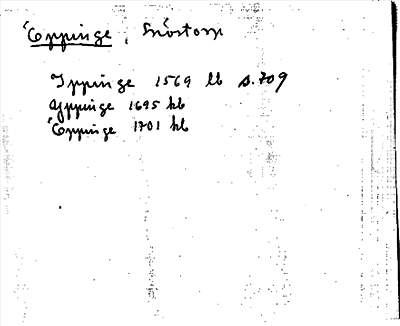 Öppinge, Snöstorp
Yppinge 1569 lb s. 709
Yppinge 1695 kb
Öppinge 1701 kb